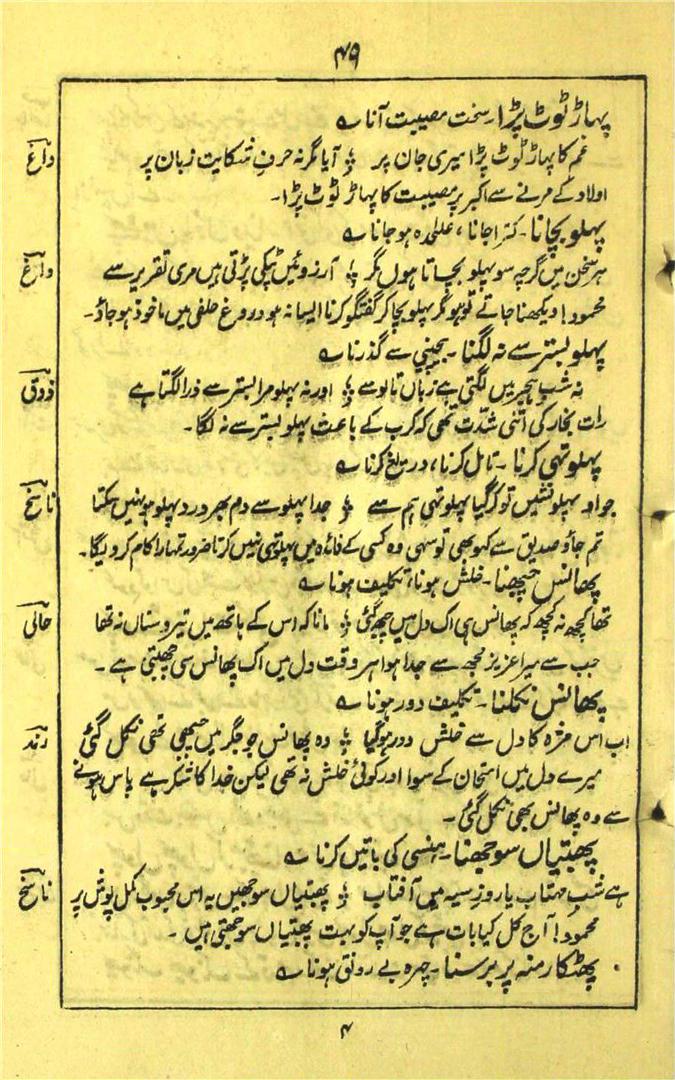 ۴۹
پہاڑ ٹوٹ پڑا۔ سخت مصیبت آنا ؎
داغ غم کا پہاڑ ٹوٹ پڑا میری جان پر ؛ آیا مگر نہ حرفِ شکایت زبان پر
اولاد کے مرنے سے اکبر پر مصیبت کا پہاڑ ٹوٹ پڑا۔
پہلو بچانا۔ کترا جانا، علٰحدہ ہو جانا ؎
داغ ہر سخن میں گرچہ سو پہلو بچاتا ہوں مگر ؛ آرزوئیں ٹپکی پڑتی ہیں مری تقریر سے
محمود! دیکھنا جاتے تو ہو مگر پہلو بچا کر گفتگو کرنا ایسا نہ ہو دروغ حلفی میں ماخوذ ہو جاؤ۔
پہلو بستر سے نہ لگنا۔ بیچینی سے گذرنا ؎
ذوق نہ شبِ ہجر میں لگتی ہے زباں تالو سے ؛ اور نہ پہلو مرا بستر سے ذرا لگتا ہے
رات بخار کی اتنی شدّت تھی کہ کرب کے باعث پہلو بستر سے نہ لگا۔
پہلو تہی کرنا۔ تامل کرنا، دریغ کرنا ؎
ناسخ جو او پہلو نشیں تو کر گیا پہلو تہی ہم سے ؛ جدا پہلو سے دم بھر درد پہلو ہو نہیں سکتا
تم جاؤ صدیق سے کہو بھی تو سہی وہ کسی کے فائدہ میں پہلو تہی نہیں کرتا ضرور تمہارا کام کر دیگا۔
پھانس چبھنا۔ خلش ہونا، تکلیف ہونا ؎
حالی تھا کچھ نہ کچھ کہ پھانس ہی اک دل میں چبھ گئی ؛ مانا کہ اس کے ہاتھ میں تیر و سناں نہ تھا
جب سے میرا عزیز مجھ سے جدا ہوا ہر وقت دل میں اک پھانس سی چبھتی ہے۔
پھانس نکلنا۔ تکلیف دور ہونا ؎
رند اب اس مژہ کا دل سے خلش دور ہو گیا ؛ وہ پھانس جو جگر میں چبھی تھی نکل گئی
میرے دل میں امتحان کے سوا اور کوئی خلش نہ تھی لیکن خدا کا شکر ہے پاس ہونے
سے وہ پھانس بھی نکل گئی۔
پھبتیاں سوجھنا۔ ہنسی کی باتیں کرنا ؎
ناسخ ہے شبِ مہتاب یا روزِ سیہ میں آفتاب ؛ پھبتیاں سوجھیں یہ اس محبوب کمل پوش پر
محمود! آج کل کیا بات ہے جو آپ کو بہت پھبتیاں سوجھتی ہیں۔
پھٹکار منہ پر برسنا۔ چہرہ بے رونق ہونا ؎
۴